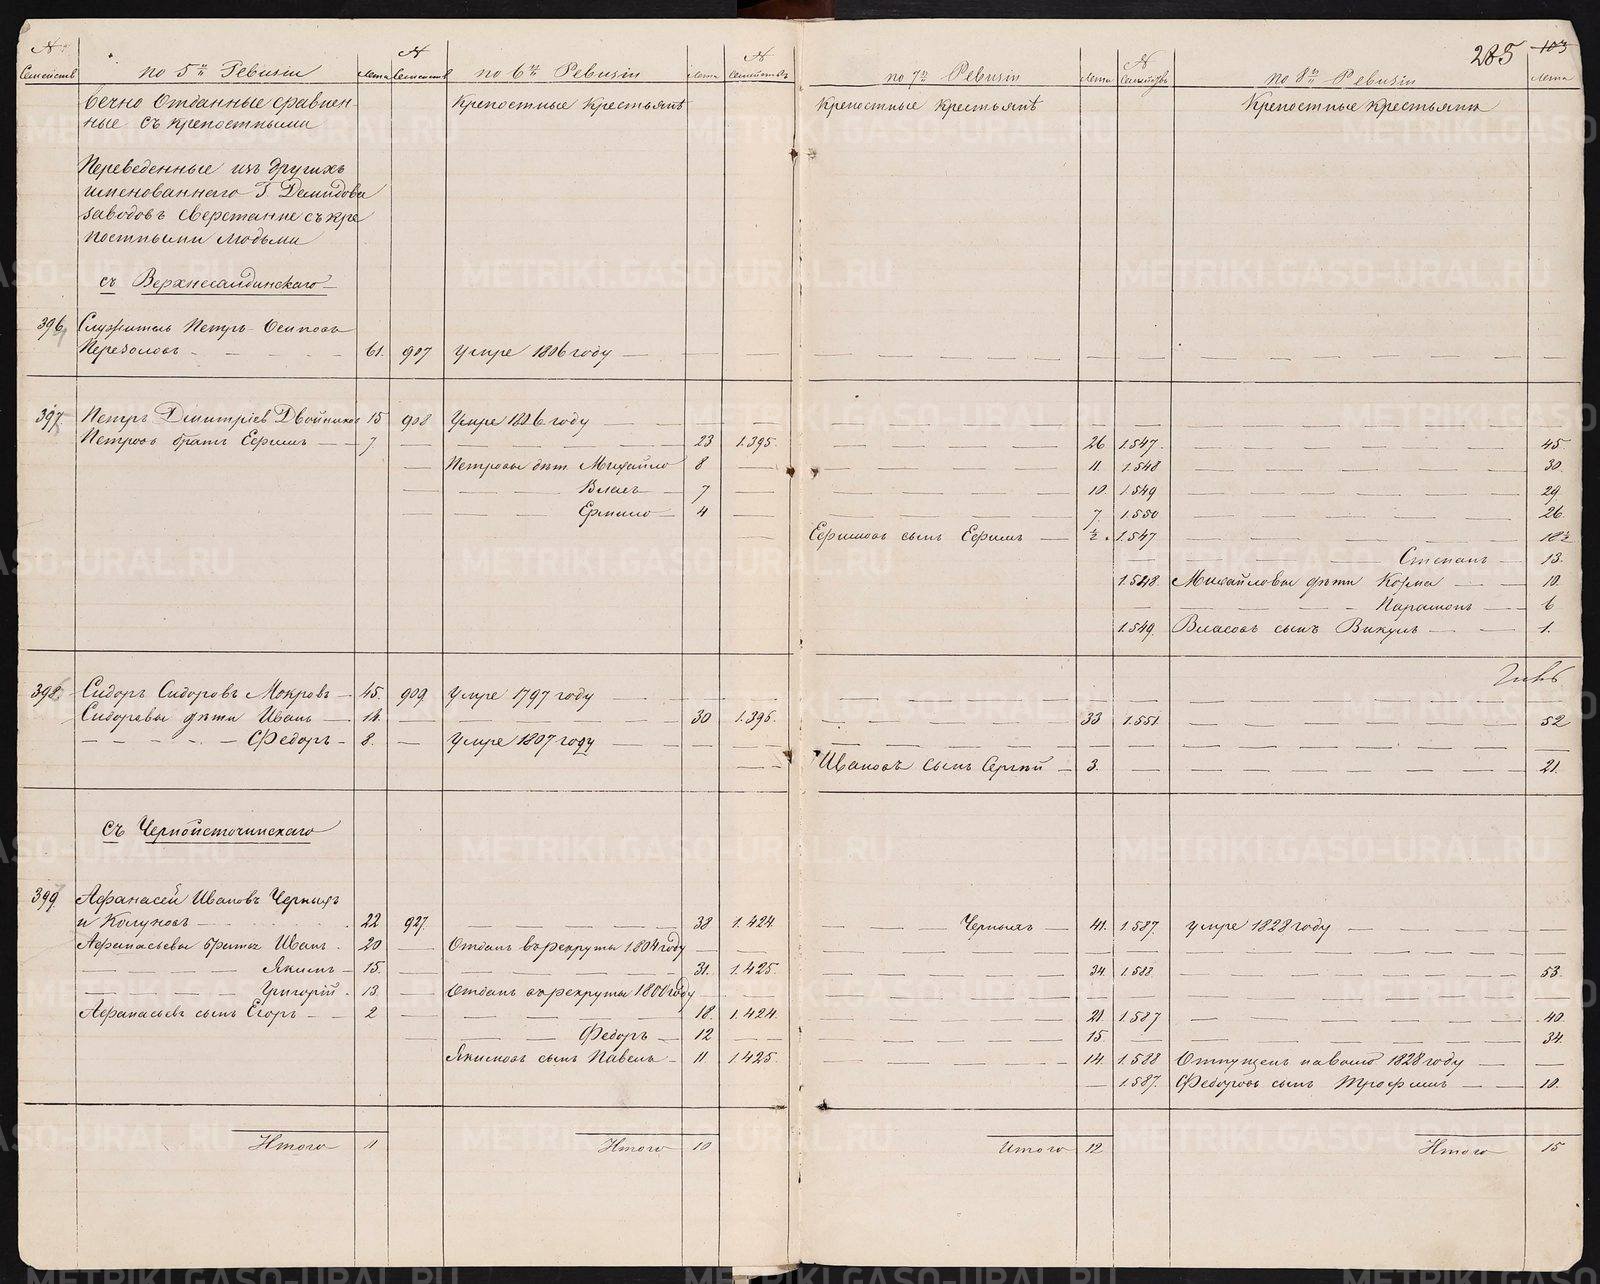 285 103
№ Семейств по 5й Ревизiи Лета № Семейств по 6й Ревизiи Лета № Семейств по 7й Ревизiи Лета № Семействъ по 8й Ревизiи Лета
Вечно Отданные сравнен- Крепостные Крестьянѣ Крепостные Крестьянѣ Крепостные Крестьяни
ные съ крепостными
Переведенные изъ другихъ
именованнаго Г Демидова
заводовъ сверстание съ кре
постными людьми
съ Верхнесалдинскаго
396 Служитель Петръ Осиповъ
61. 907 Умре 1806 году
397. Петръ Дмитрiев Двойников 15 908 Умре 1806 году
Петровъ братъ Ефимъ 7 23 1.395. 26 1.547. 45.
Петровы дѣт. Михайло 8 11. 1.548 30.
Власъ 7 10 1.549 29.
Ермило 4 7. 1.550 26.
Ефимовъ сынъ Ефимъ ½. 1.547 18½
Степанъ 13.
1.548. Михайловы дѣти Корма 10.
Парамонъ 6
1.549. Власовъ сынъ Викулъ 1.
398. Сидоръ Сидоровъ Мокровъ 45. 909. Умре 1797 году
Сидоровы дѣти Иванъ 14. 30 1.396. 33 1.551. 52
Федоръ 8. Умре 1807 году
Ивановъ сынъ Сергѣй 3. 21.
съ Черноисточинскаго
399. Афанасей Ивановъ Черныхъ
и Колуновъ 22 927. 38 1.424. Черныхъ 41. 1.587. умре 1828 году
Афанасьевы братья Иванъ 20 Отданъ в рекруты 1804 году
Якимъ 15. 31. 1.425. 34. 1.588. 53.
Григорiй 13. Отданъ в рекруты 1800 году
Афанасьевъ сынъ Егоръ 2 18. 1.424. 21. 1.587 40.
Федоръ 12 15. 34.
Якимовъ сынъ Павелъ 11 1.425. 14. 1.588 Отпущенъ на волю 1828 году
1.587. Федоровъ сынъ Трофимъ 10.
Итого 11 Итого 10 Итого 12 Итого 15
METRIKI.GASO-URAL.RU